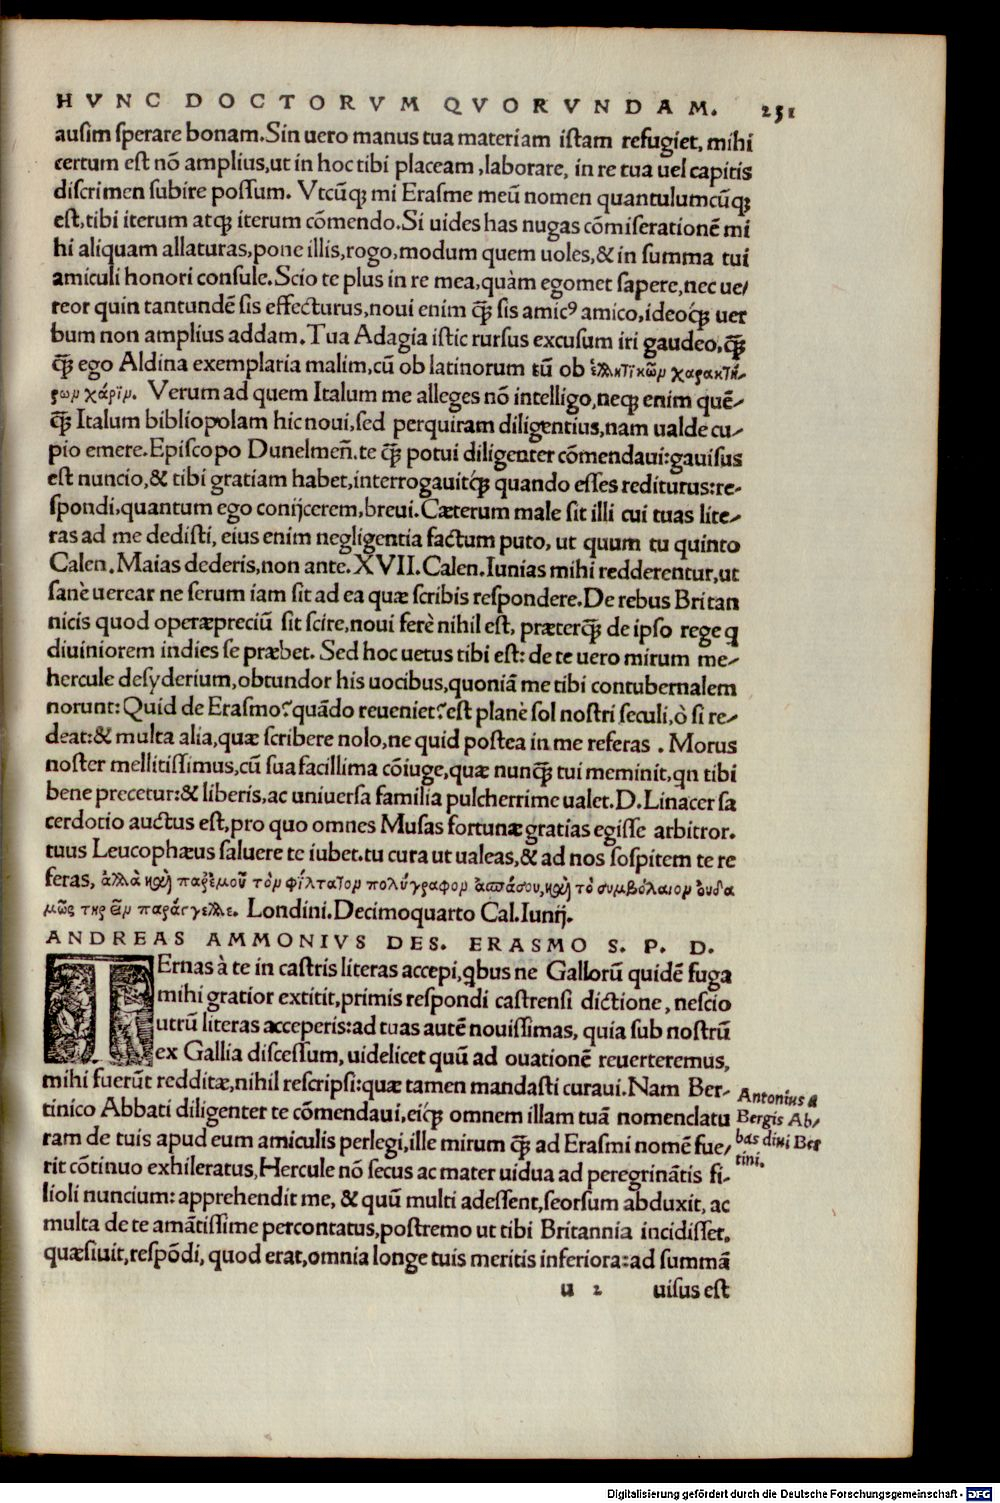 HVNC DOCTORVM QVORVNDAM. 251
ausim sperare bonam. Sin uero manus tua materiam istam refugiet, mihi
certum est nõ amplius, ut in hoc tibi placeam, laborare, in re tua uel capitis
discrimen subire possum. Vtcũq; mi Erasme meũ nomen quantulumcũq;
est, tibi iterum atq; iterum cõmendo. Si uides has nugas cõmiserationẽ mi
hi aliquam allaturas, pone illis, rogo, modum quem uoles, & in summa tui
amiculi honori consule. Scio te plus in re mea, quàm egomet sapere, nec ue/
reor quin tantundẽ sis effecturus, noui enim q̃ȝ sis amicꝰ amico, ideoq́; uer
bum non amplius addam. Tua Adagia istic rursus excusum iri gaudeo, q̃ȝ
q̃ȝ ego Aldina exemplaria malim, cũ ob latinorum tũ ob ἑλληνικῶν χαρακτή-
ρων χάριν. Verum ad quem Italum me alleges nõ intelligo, neq; enim quẽ/
q̃ȝ Italum bibliopolam hic noui, sed perquiram diligentius, nam ualde cu/
pio emere. Episcopo Dunelmeñ. te q̃ȝ potui diligenter cõmendaui: gauisus
est nuncio, & tibi gratiam habet, interrogauitq́; quando esses rediturus: re-
spondi, quantum ego conijcerem, breui. Cæterum male sit illi cui tuas lite/
ras ad me dedisti, eius enim negligentia factum puto, ut quum tu quinto
Calen. Maias dederis, non ante. XVII. Calen. Iunias mihi redderentur, ut
sanè uerear ne serum iam sit ad ea quæ scribis respondere. De rebus Britan
nicis quod operæpreciũ sit scire, noui ferè nihil est, præterq̃ȝ de ipso rege q
diuiniorem indies se præbet. Sed hoc uetus tibi est: de te uero mirum me/
hercule desyderium, obtundor his uocibus, quoniã me tibi contubernalem
norunt: Quid de Erasmo? quãdo reueniet? est planè sol nostri seculi, ò si re/
deat: & multa alia, quæ scribere nolo, ne quid postea in me referas. Morus
noster mellitissimus, cũ sua facillima cõiuge, quæ nunq̃ȝ tui meminit, qn tibi
bene precetur: & liberis, ac uniuersa familia pulcherrime ualet. D. Linacer sa
cerdotio auctus est, pro quo omnes Musas fortunæ gratias egisse arbitror.
tuus Leucophæus saluere te iubet. tu cura ut ualeas, & ad nos sospitem te re
feras, ἀλλὰ καὶ παρ' ἐμοῦ τὸν φίλτατον πολύγραφον ἀσπάσου, καὶ τὸ συμβόλαιον οὐδα
μῶς τηρεῖν παράγγελλε. Londini. Decimoquarto Cal. Iunij.
ANDREAS AMMONIVS DES. ERASMO S. P. D.
TErnas à te in castris literas accepi, qbus ne Gallorũ quidẽ fuga
mihi gratior extitit, primis respondi castrensi dictione, nescio
utrũ literas acceperis: ad tuas autẽ nouissimas, quia sub nostrũ
ex Gallia discessum, uidelicet quũ ad ouationẽ reuerteremus,
mihi fuerũt redditæ, nihil rescripsi: quæ tamen mandasti curaui. Nam Ber-
tinico Abbati diligenter te cõmendaui, eiq́; omnem illam tuã nomenclatu
ram de tuis apud eum amiculis perlegi, ille mirum q̃ȝ ad Erasmi nomẽ fue/
rit cõtinuo exhileratus, Hercule nõ secus ac mater uidua ad peregrinãtis fi-
lioli nuncium: apprehendit me, & quũ multi adessent, seorsum abduxit, ac
multa de te amãtissime percontatus, postremo ut tibi Britannia incidisset,
quæsiuit, respõdi, quod erat, omnia longe tuis meritis inferiora: ad summã
Antonius a
Bergis Ab/
bas diui Ber
tini.
u 2 uisus est
Digitalisierung gefördert durch die Deutsche Forschungsgemeinschaft - DFG